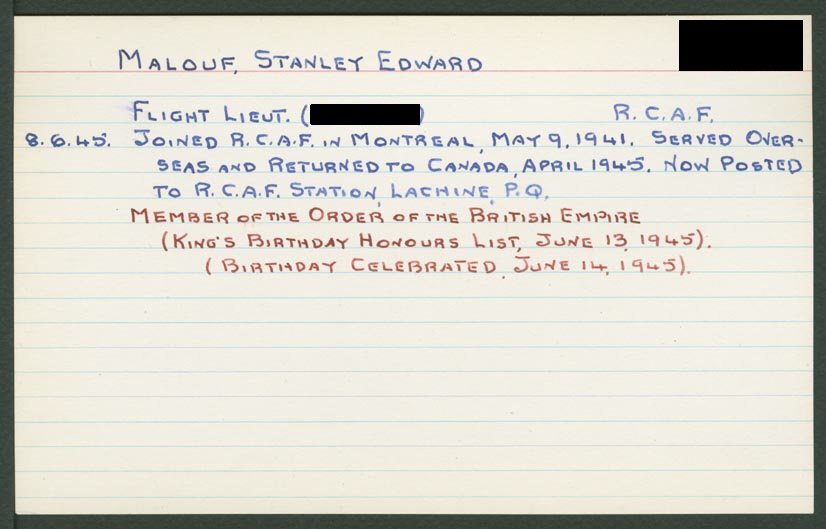 MALOUF, STANLEY EDWARD
FLIGHT LIEUT. ( ) R.C.A.F.
8.6.45. JOINED R.C.A.F. IN MONTREAL, MAY 9, 1941. SERVED OVER-
SEAS AND RETURNED TO CANADA, APRIL 1945. NOW POSTED
TO R.C.A.F. STATION, LACHINE, P.Q.
MEMBER OF THE ORDER OF THE BRITISH EMPIRE
(KING'S BIRTHDAY HONOURS LIST, JUNE 13, 1945).
(BIRTHDAY CELEBRATED, JUNE 14, 1945).